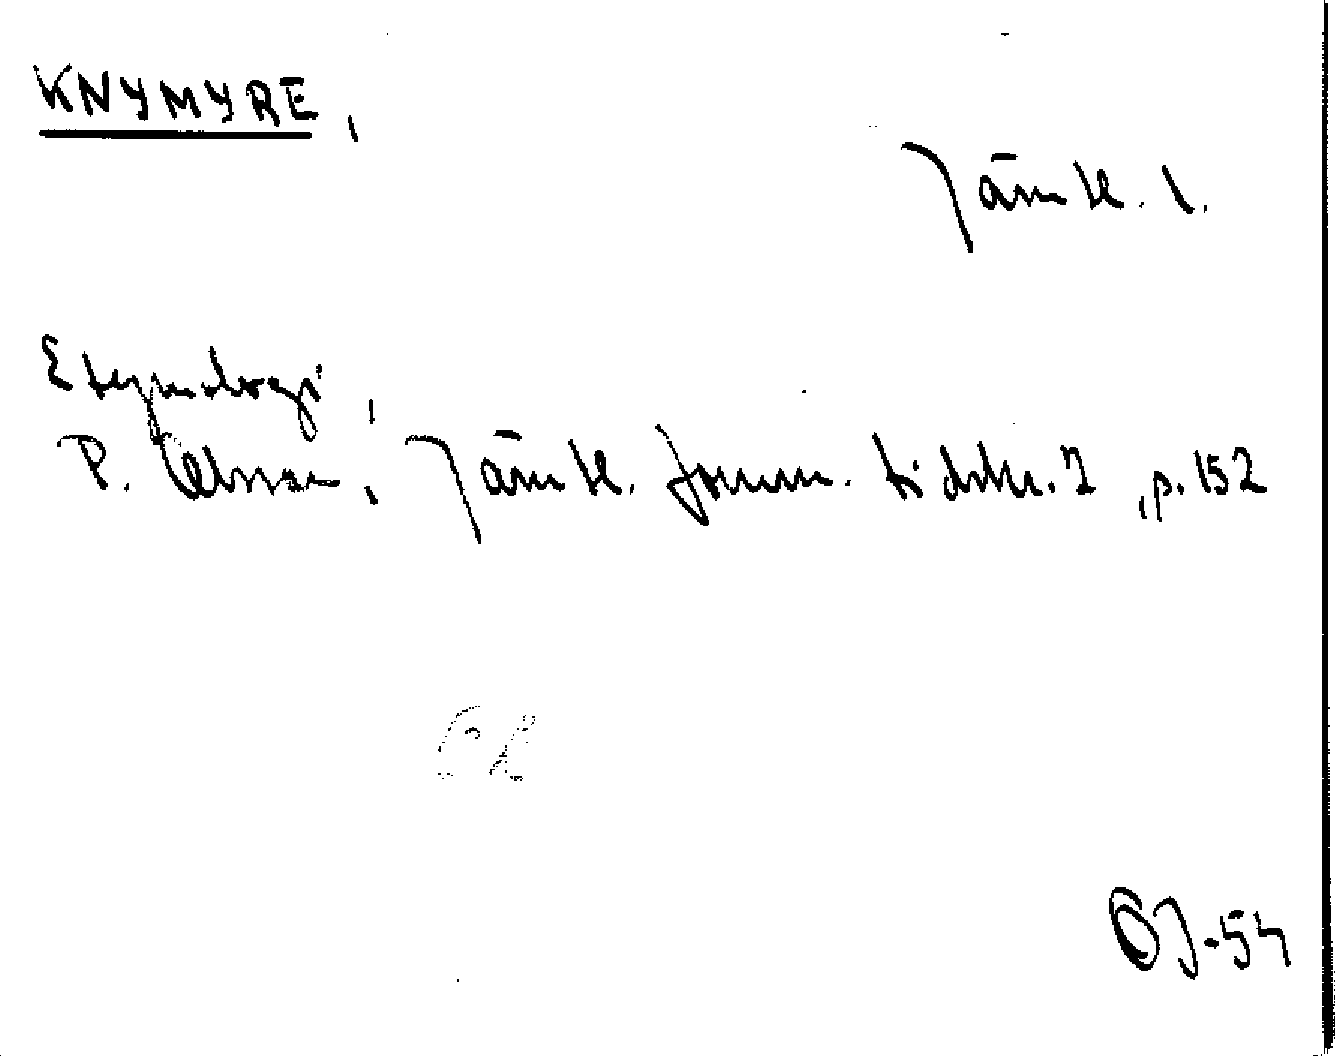 KNYMYRE,
Jämtl. l.
Etymologi,
P. Olsson, Jämtl. fornm. tidskr. 2, p. 152
OJ-54